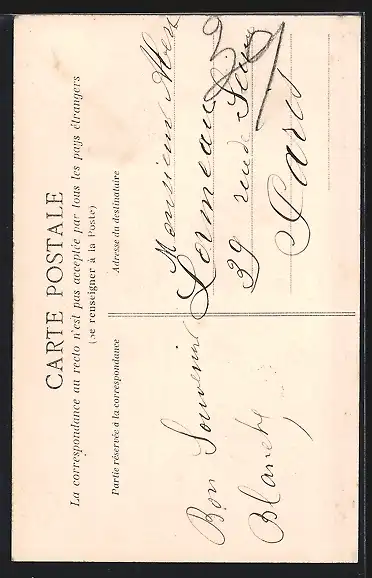 CARTE POSTALE
La correspondance au recto n'est pas acceptée par tous les pays étrangers
(se renseigner à la Poste)
Partie réservée à la correspondance
Adresse du destinataire
Bon Souvenir
Blanche
Monsieur
Lormeau
39 rue de
Paris